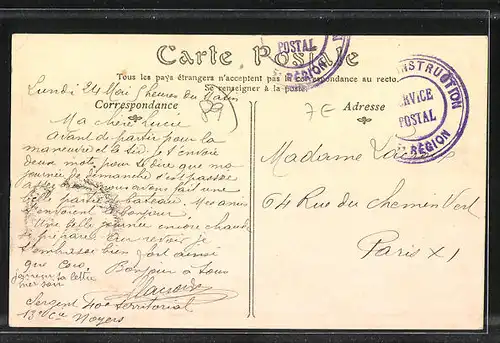 Carte Postale
Tous les pays étrangers n'acceptent pas la correspondance au recto.
Se renseigner à la poste.
Correspondance
Adresse
INSTRUCTION
SERVICE
POSTAL
RÉGION
POSTAL
RÉGION
7E
Lundi 24 Mai heures du Matin
Ma chère Lucie
avant de partir pour la
manœuvre et le tir je t'envoie
deux mots pour te dire que ma
journée de dimanche s'est passée
nous avons fait une
belle partie bateau. Mes amis
t'envoient le bonjour.
Une belle journée encore chaude
se prépare. Au revoir je
t'embrasse bien fort ainsi
que Coco. Bonjour à tous
ta lettre
Sergent 40e territorial
13e Cie Noyers
Madame
64 Rue du Chemin Vert
Paris XI